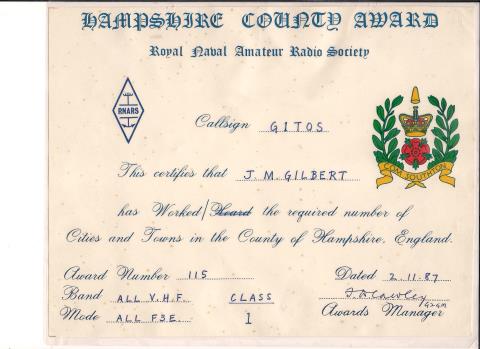 HAMPSHIRE COUNTY AWARD
Royal Naval Amateur Radio Society
RNARS
Callsign G1TOS
COM. SOUTHTON
This certifies that J. M. GILBERT
has Worked/Heard the required number of
Cities and Towns in the County of Hampshire, England.
Award Number 115 Dated 2.11.87
Band ALL V.H.F. CLASS
Mode ALL F3E. 1 Awards Manager